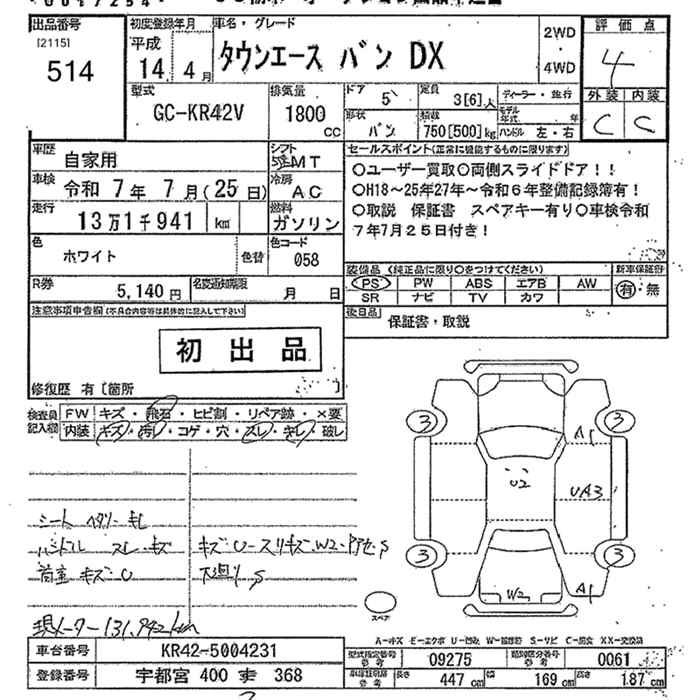 出品番号
[2115]
514
初度登録年月
平成
14 4月
車名・グレード
タウンエース バン DX
2WD
4WD
評価点
4
外装 内装
C C
型式
GC-KR42V
排気量
1800
CC
ドア
5
定員
3[6]人
形状
バン
積載
750[500]kg
ディーラー・並行
モデル年式 年
ハンドル 左・右
車歴
自家用
シフト
5速MT
車検
令和 7年 7月(25日)
冷房
AC
走行
13万1千941 km
燃料
ガソリン
色
ホワイト
色替
色コード
058
R券
5,140円
名変通知期限
月 日
セールスポイント(正常に機能するものに限ります)
○ユーザー買取○両側スライドドア!!
○H18〜25年27年〜令和6年整備記録簿有!
○取説 保証書 スペアキー有り○車検令和
7年7月25日付き!
装備品 (純正品に限り○をつけてください)
新車保証書
PS PW ABS エアB AW
SR ナビ TV カワ
有・無
後日品
保証書・取説
注意事項申告欄(不具合内容等は具体的に記入して下さい)
初出品
修復歴 有〔箇所
検査員
記入欄
FW キズ・飛石・ヒビ割・リペア跡・×要
内装 キズ・汚レ・コゲ・穴・スレ・キレ・破レ
シート ヘタリ・キレ
ハンドル スレ・キズ
荷室 キズ・U
キズ・U・スリキズ・W2・アアセ・S
下廻り S
現メーター131,942km
3
3
3
3
A1
U2
UA3
W2
A1
スペア
A-キズ E-エクボ U-凹み W-補修跡 S-サビ C-腐食 XX-交換済
車台番号
KR42-5004231
登録番号
宇都宮 400 す 368
型式指定番号
参考
09275
類別区分番号
参考
0061
参考
長さ
447 cm
幅
169 cm
高さ
187 cm